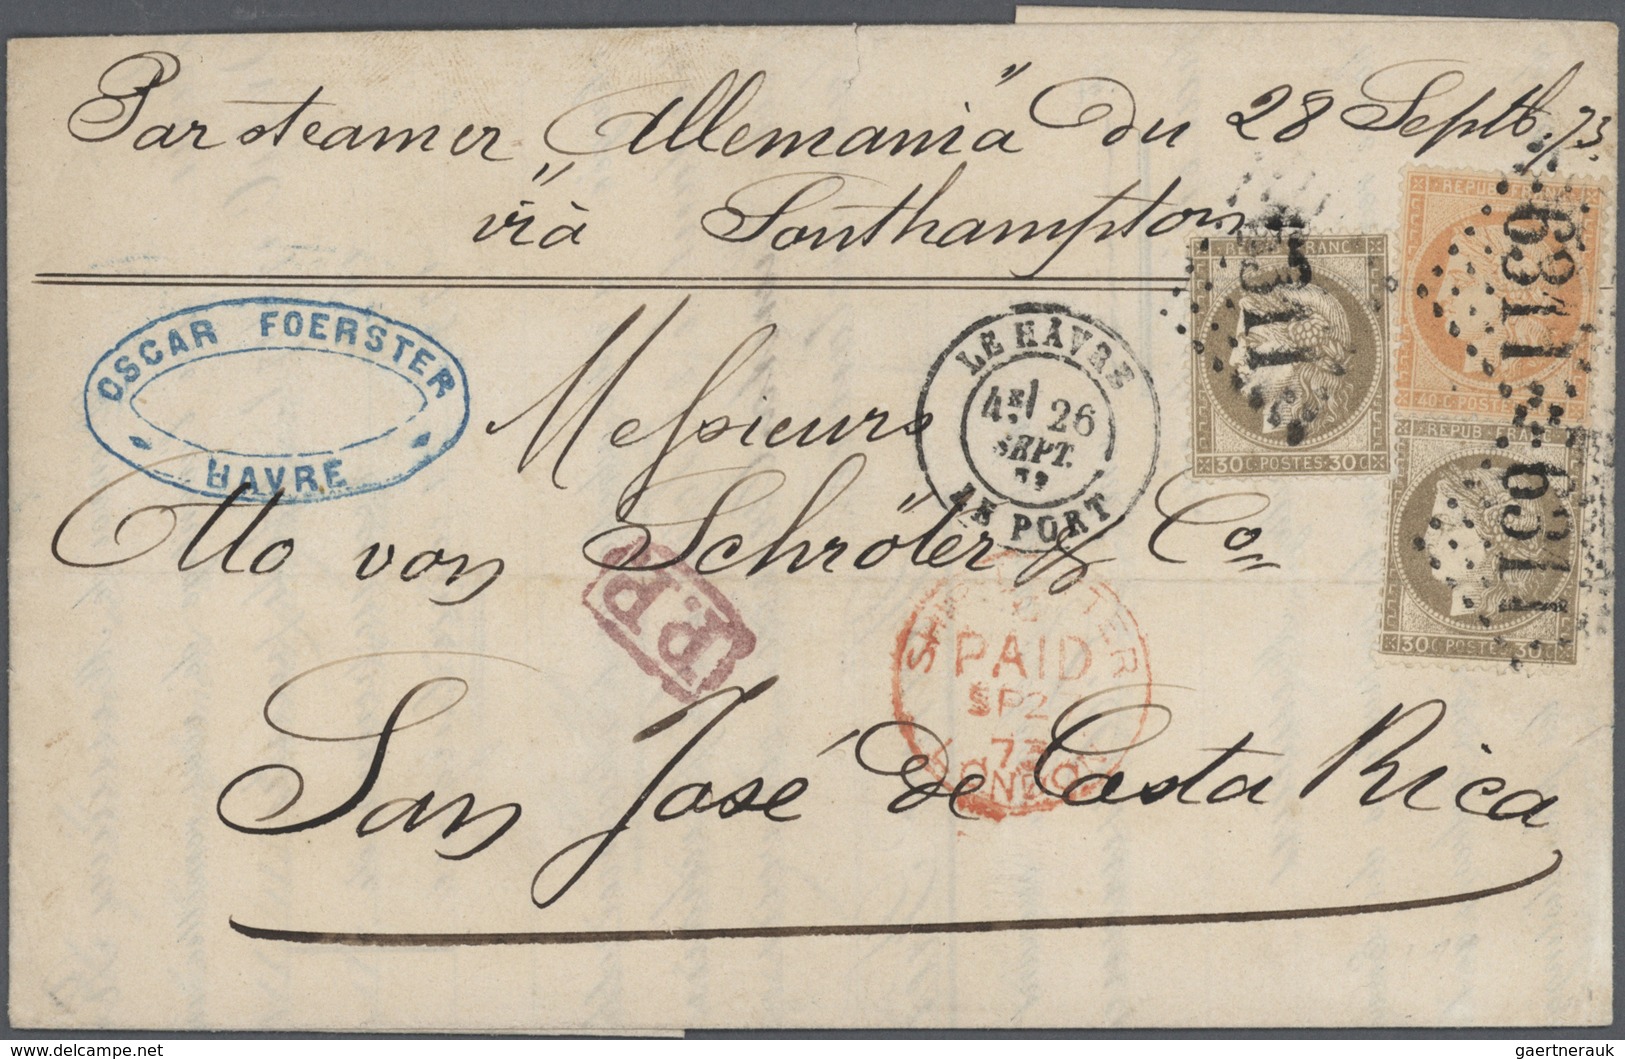 Par steamer „Allemania" du 28 Septb. 73.
vià Southampton
OSCAR FOERSTER
HAVRE
Messieurs
Otto von Schröter & Co
San José de Costa Rica
LE HAVRE
4E/ 26
SEPT.
73
LE PORT
P.P.
PAID
SP2
73
LONDON
REPUB. FRANC.
30 C. POSTES. 30 C.
REPUB. FRANC.
40 C. POSTES
REPUB. FRANC.
30 C. POSTES 30 C.
1769
delcampe.net
gaertnerauk